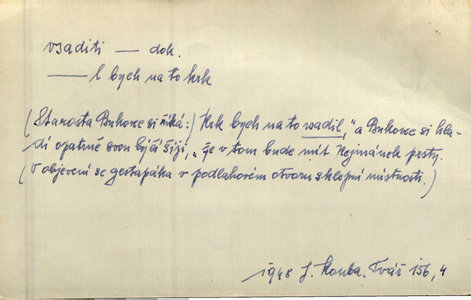 vsaditi — dok.
— l bych na to krk
(Starosta Bukovec si říká:) Krk bych na to vsadil," a Bukovec si hla-
dí opatrně svou býčí šíji, „že v tom bude mít Nejmánek prsty.
(V objevení se gestapáka v podlahovém otvoru sklepní místnosti.)
1948 J. Kouba. Tvář 156, 4